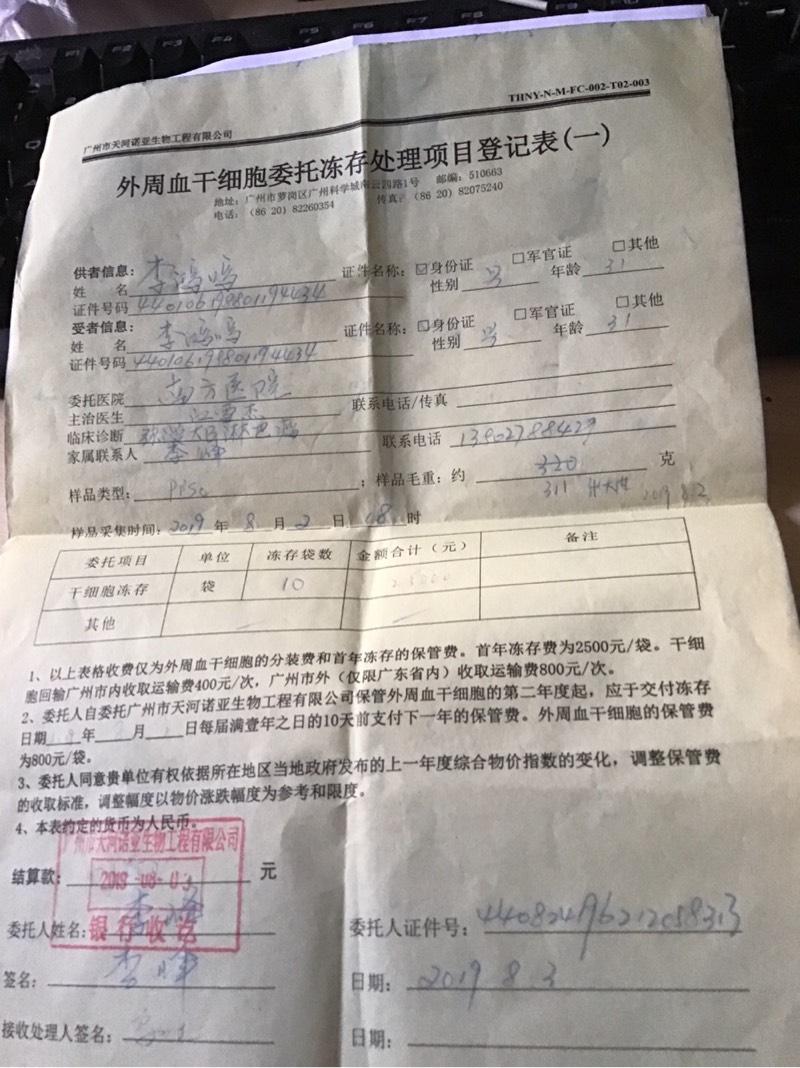 THNY-N-M-FC-002-T02-003
广州市天河诺亚生物工程有限公司
外周血干细胞委托冻存处理项目登记表(一)
地址：广州市萝岗区广州科学城南云四路1号 邮编：510663
电话：（86 20）82260354 传真：（86 20）82075240
供者信息： 证件名称：☑身份证 □军官证 □其他
姓 名 李鸿鸣 性别 男 年龄 31
证件号码 440106199801194434
受者信息： 证件名称：☑身份证 □军官证 □其他
姓 名 李鸿鸣 性别 男 年龄 31
证件号码 440106199801194434
委托医院 南方医院 联系电话/传真
主治医生
临床诊断 联系电话 13902788427
家属联系人 李晖
样品类型： PBSC ；样品毛重：约 320 克
311 2019 8.2
样品采集时间：2019 年 8 月 2 日 08 时
委托项目 单位 冻存袋数 金额合计（元） 备注
干细胞冻存 袋 10
其他
1、以上表格收费仅为外周血干细胞的分装费和首年冻存的保管费。首年冻存费为2500元/袋。干细
胞回输广州市内收取运输费400元/次，广州市外（仅限广东省内）收取运输费800元/次。
2、委托人自委托广州市天河诺亚生物工程有限公司保管外周血干细胞的第二年度起，应于交付冻存
日期 年 月 日每届满壹年之日的10天前支付下一年的保管费。外周血干细胞的保管费
为800元/袋。
3、委托人同意贵单位有权依据所在地区当地政府发布的上一年度综合物价指数的变化，调整保管费
的收取标准，调整幅度以物价涨跌幅度为参考和限度。
4、本表约定的货币为人民币。
广州市天河诺亚生物工程有限公司
结算款： 元
2019-08-03
银行收讫
委托人姓名： 李晖 委托人证件号：440824196212058313
签名： 李晖 日期： 2019 8.3
接收处理人签名： 日期：